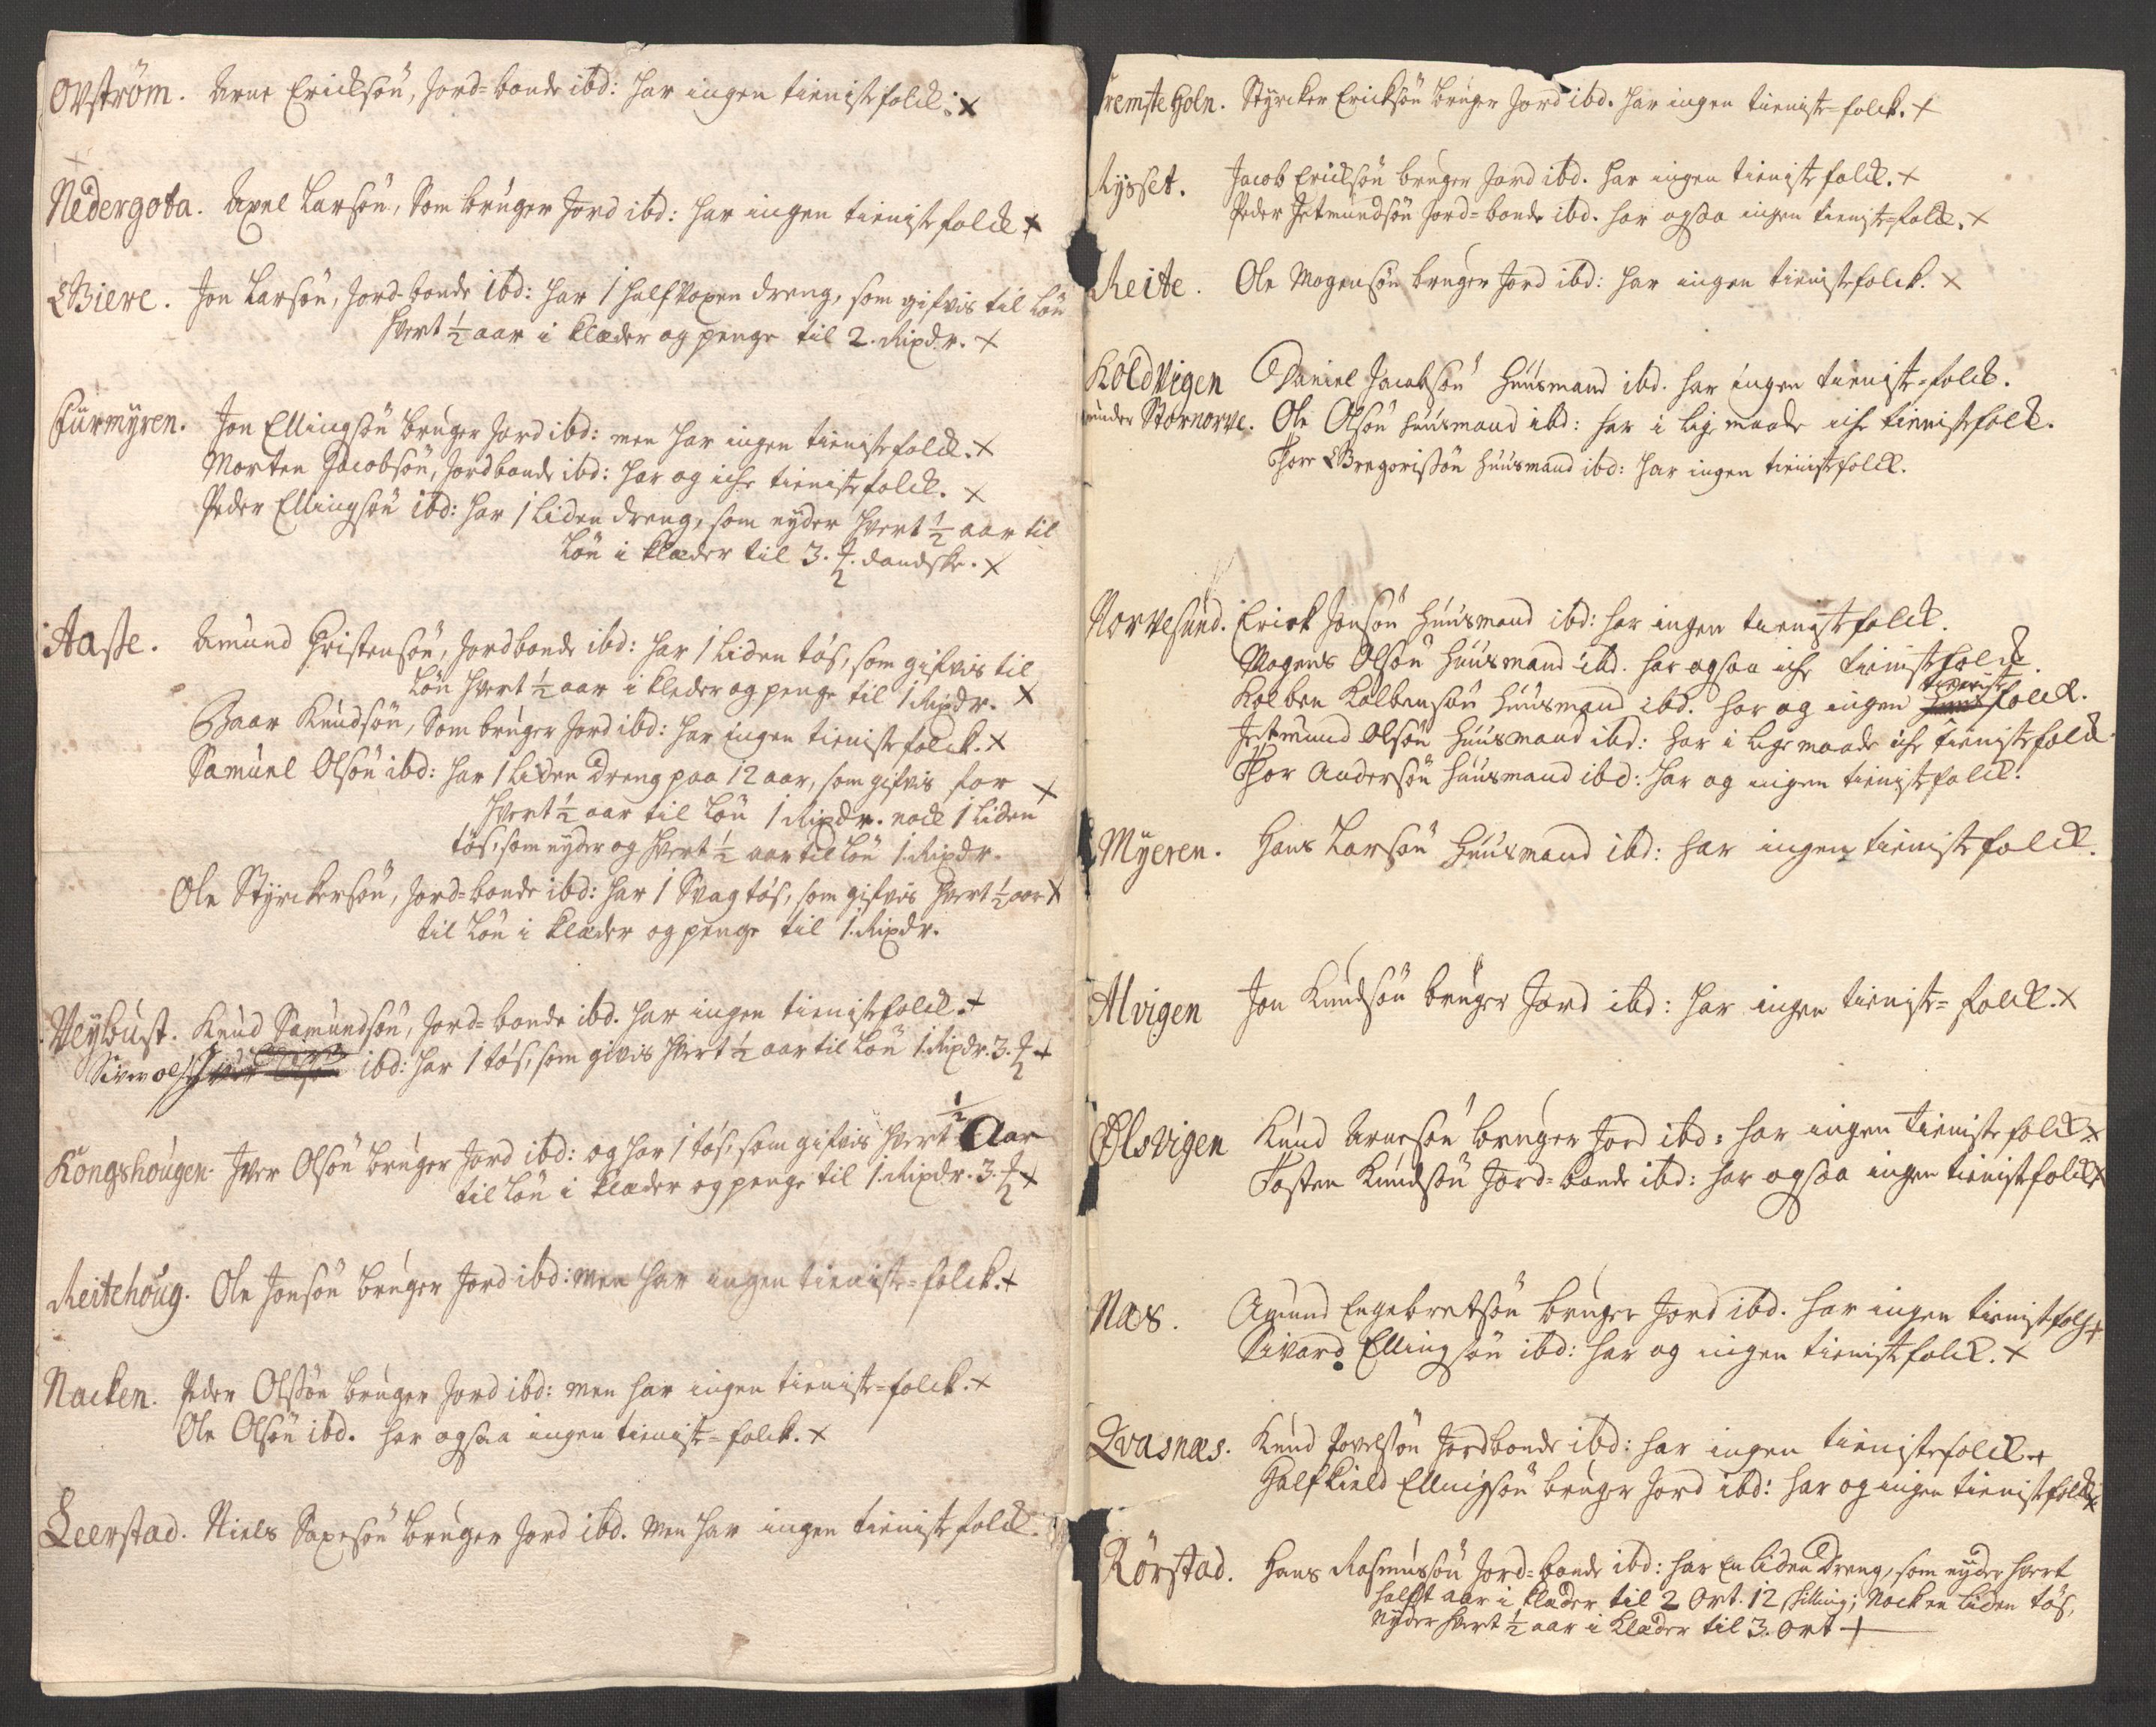 Ovström. Arne Erichsön, Jord-bonde ibd: har ingen tienistefolck. x
Nedergota. Axel Larsön, Som brúger Jord ibd: har ingen tienistefolck x
Biere. Jon Larsön, Jord-bonde ibd: har 1 half Voxen dreng, som gifvis til Lön
hvert ½ aar i klæder og penge til 2. Rixdr. x
Fúrmyren. Jon Ellingsön brúger Jord ibd: men har ingen tienistefolck. x
Morten Jacobsön, Jordbonde ibd: har og iche tienistefolck. x
Peder Ellingsön ibd: har 1 liden dreng, som nyder hvert ½ aar til
Lön i klæder til 3. danske. x
Aasse. Amund Christensön, Jordbonde ibd: har 1 liden tös, som gifvis til
Lön hvert ½ aar i kleder og penge til 1 Rixdr. x
Baar Knúdsön, Som brúger Jord ibd: har ingen tienistefolck. x
Samúel Olsön ibd: har 1 liden dreng paa 12 aar, som gifvis for x
hvert ½ aar til Lön 1 Rixdr. nock 1 liden
tös, som nyder og hvert ½ aar til Lön 1. Rixdr.
Ole Styrckersön, Jord-bonde ibd: har 1 Svag tös, som gifvis hvert ½ aar x
til Lön i klæder og penge til 1. Rixdr.
Veybúst. Knúd Samúndsön, Jord-bonde ibd. har ingen tienistefolck. x
Siver Ols: ibd: har 1 tös, som givis hvert ½ aar til Lön 1. Rixdr. 3. x
Kongshoúgen. Iver Olsön brúger Jord ibd: og har 1 tös, som gifvis hvert ½ Aar
til Lön i klæder og penge til 1. Rixdr. 3. x
Reitehoúg. Ole Jonsön brúger Jord ibd: men har ingen tieniste-folck. x
Nacken. Peder Olssön brúger Jord ibd: men har ingen tieniste-folck. x
Ole Olsön ibd. har ogsaa ingen tieniste-folck. x
Leerstad. Niels Saxesön brúger Jord ibd. men har ingen tienistefolck.
Fremste Holn. Styrcker Ericksön brúger Jord ibd. har ingen tieniste-folck. x
Rysset. Jacob Ericksön brúger Jord ibd. har ingen tienistefolck. x
Peder Jetmúndsön Jord-bonde ibd. har ogsaa ingen tieniste-folck. x
Reite. Ole Mogensön brúger Jord ibd: har ingen tienistefolck. x
Koldvigen Daniel Jacobsön húúsmand ibd. har ingen tieniste-folck.
under Stornorve. Ole Olsön húúsmand ibd: har i lige maade iche tienistefolck.
Thore Gregorissön húúsmand ibd: har ingen tienistefolck.
Norvesúnd. Erick Jonsön húúsmand ibd: har ingen tienistefolck.
Mogens Olsön húúsmand ibd. har ogsaa iche tienistefolck.
Kolben Kolbensön húúsmand ibd. har og ingen tieniste folck.
Jetmúnd Olsön húúsmand ibd: har i lige maade iche tienistefolck.
Thor Andersön húúsmand ibd: har og ingen tienistefolck.
Myeren. Hans Larsön húúsmand ibd: har ingen tienistefolck.
Alvigen Jon Knúdsön brúger Jord ibd: har ingen tieniste-folck. x
Ølsvigen Knúd Arnesön brúger Jord ibd: har ingen tienistefolck x
Tosten Knúdsön Jord-bonde ibd: har ogsaa ingen tienistefolck x
Næs. Amund Engebretsön brúger Jord ibd. har ingen tienistefolck x
Sivard Ellingsön ibd: har og ingen tienistefolck. x
Qvasnæs. Knúd Povelsön Jordbonde ibd: har ingen tienistefolck x
Halfkield Ellingsön brúger Jord ibd: har og ingen tienistefolck x
Rörstad. Hans Rasmússön Jord-bonde ibd: har en liden dreng, som nyder hvert
halft aar i klæder til 2 Ort. 12 skilling; Nock en liden tös,
Nyder hvert ½ aar i klæder til 3. Ort x